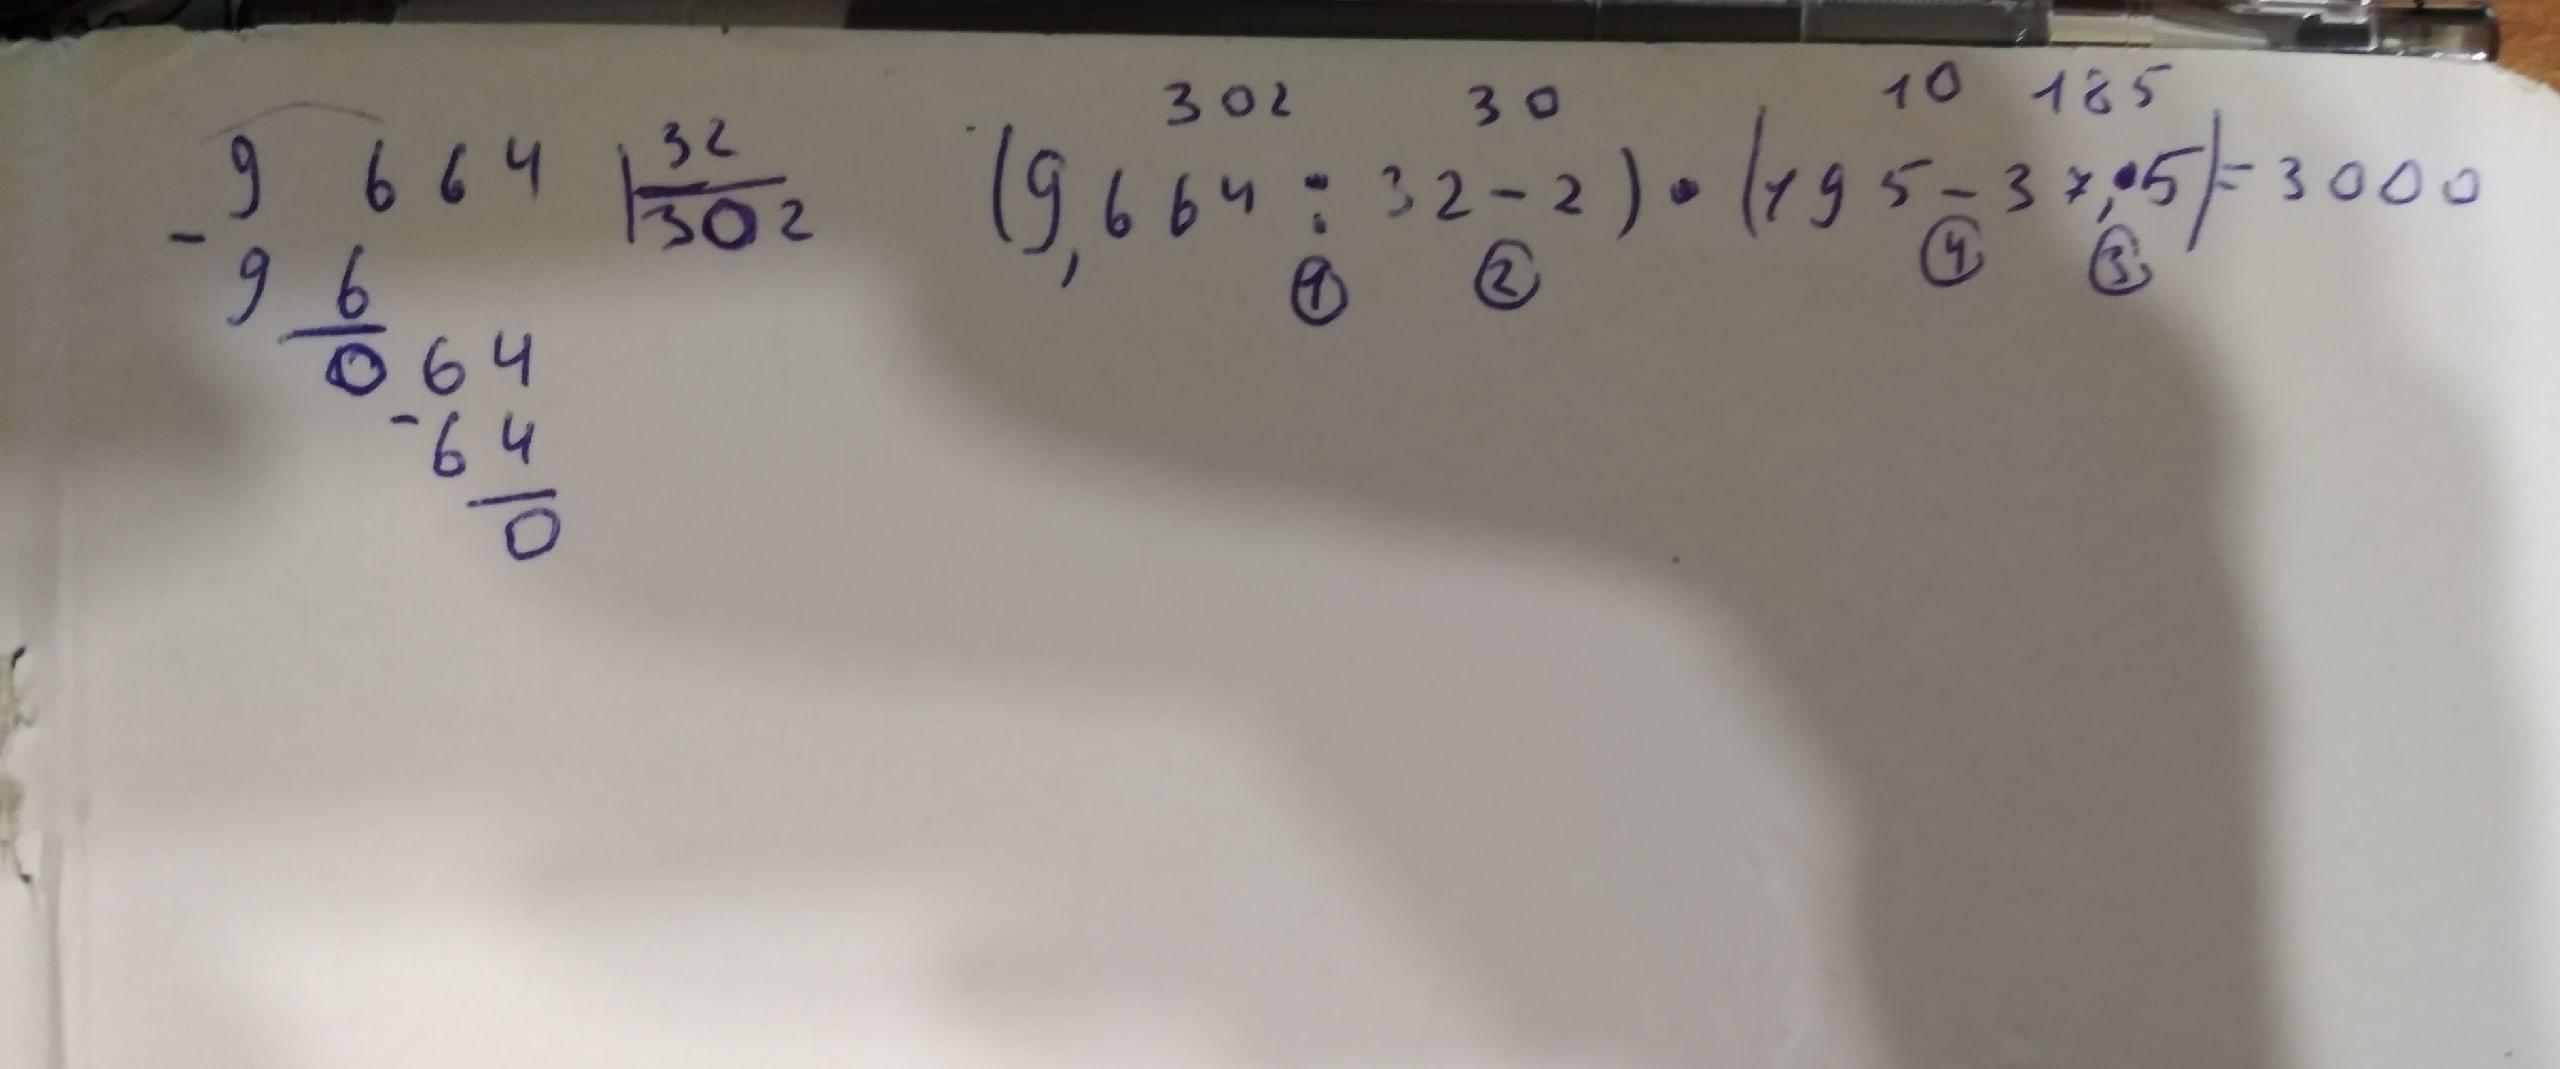 9 664 | 32
- 96 | 302
064
- 64
0
302 30 10 185
(9,664 : 32 - 2) • (195 - 37,•5) = 3000
① ② ④ ③